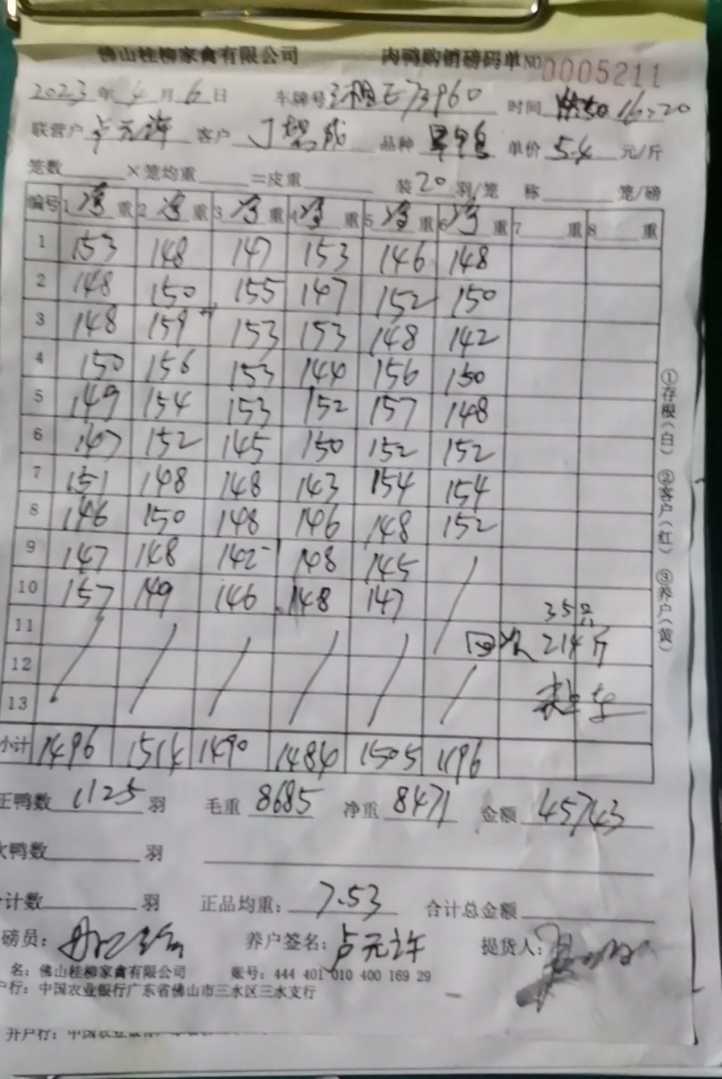 佛山桂柳家禽有限公司 肉鸭购销磅码单 NO 0005211
2023 年 4 月 6 日 车牌号 E73960 时间 16:20
联营户 卢元许 客户 丁 品种 单价 5.4 元/斤
笼数 ×笼均重 =皮重 装 20 羽/笼 称 笼/磅
编号 1 净 重 2 净 重 3 净 重 4 净 重 5 净 重 6 净 重 7 重 8 重
1 153 148 147 153 146 148
2 148 150 155 147 152 150
3 148 159 153 153 148 142
4 150 156 153 144 156 150
5 149 154 153 152 157 148
6 147 152 145 150 152 152
7 151 148 148 143 154 154
8 146 150 148 146 148 152
9 147 148 142 148 145
10 157 149 146 148 147 35只
11 回 214斤
12
13
小计 1496 1514 1490 1484 1505 1196
正鸭数 1125 羽 毛重 8685 净重 8471 金额 45743
次鸭数 羽
合计数 羽 正品均重: 7.53 合计总金额
磅员: 养户签名: 卢元许 提货人:
名: 佛山桂柳家禽有限公司 账号: 444 401 010 400 169 29
户行: 中国农业银行广东省佛山市三水区三水支行
①存根(白) ②客户(红) ③养户(黄)